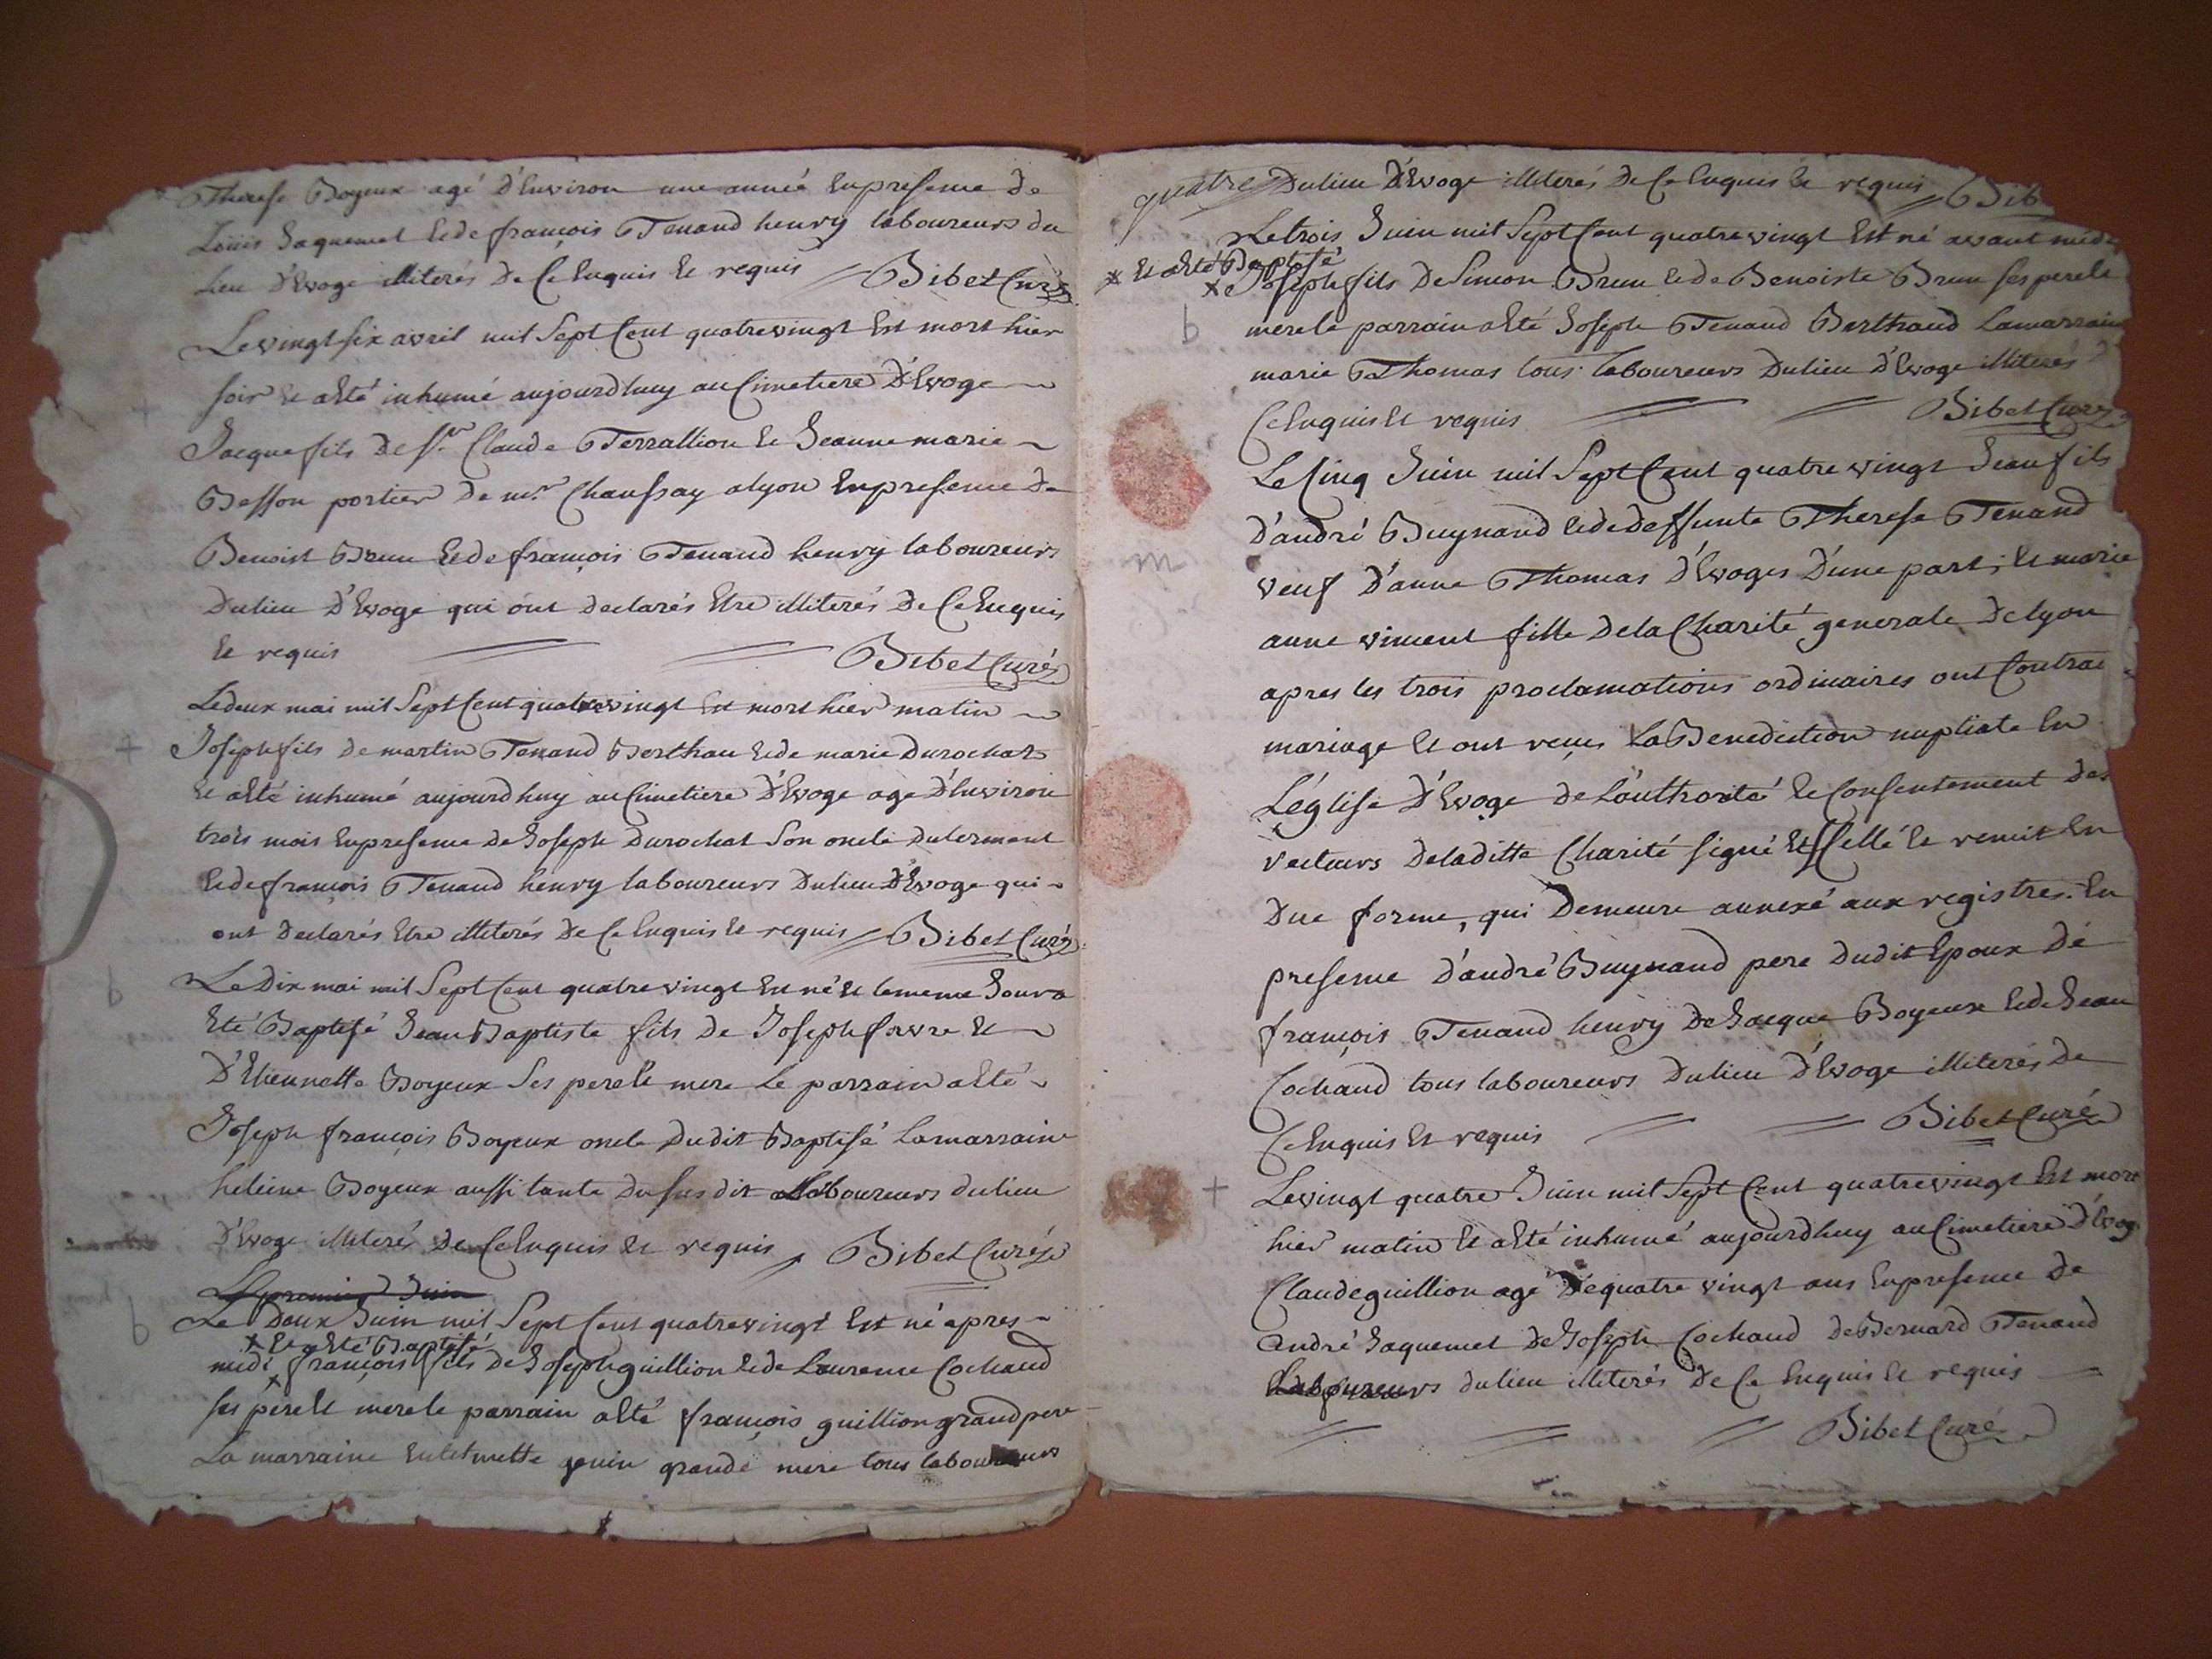 Therese Boyeux agé d'Environ une année En presence de
Louis Jaquemet Et de françois Tenand henry laboureurs du
Lieu d'Evoge illiterés de Ce Enquis Et requis Bibet Curé
Le vingt six avril mil Sept Cent quatre vingt Est mort hier
soir Et a Eté inhumé aujourdhuy au Cimetiere d'Evoge
Jacque fils de Sr. Claude Terrallion Et Jeanne marie
Besson portier de mr. Chaussay a lyon En presence de
Benoist Brun Et de françois Tenand henry laboureurs
du lieu d'Evoge qui ont declarés Etre illiterés de Ce Enquis
Et requis Bibet Curé
Le deux mai mil Sept Cent quatre vingt Est mort hier matin
+ Joseph fils de martin Tenand Berthau Et de marie Durochat
Et a Eté inhumé aujourdhuy au Cimetiere d'Evoge agé d'Environ
trois mois En presence de Joseph Durochat Son oncle
Et de françois Tenand henry laboureurs du lieu d'Evoge qui
ont declarés Etre illiterés de Ce Enquis Et requis Bibet Curé
b Le Dix mai mil Sept Cent quatre vingt Est né Et le meme Jour a
Eté Baptisé Jean Baptiste fils de Joseph favre Et
D'Etiennette Boyeux Ses pere Et mere Le parrain a Eté
Joseph françois Boyeux oncle dudit Baptisé La marraine
heleine Boyeux aussi tante du sus dit laboureurs du lieu
d'Evoge illiterés de Ce Enquis Et requis Bibet Curé
Le premier Juin
b Le Deux Juin mil Sept Cent quatre vingt Est né apres
x Et a Eté Baptisé
midi x françois fils de Joseph guillion Et de Laurence Cochaud
ses pere Et mere le parrain a Eté françois guillion grand pere
La marraine genin grande mere tous laboureurs
quatre du lieu d'Evoge illiterés de Ce Enquis Et requis Bib
Le trois Juin mil Sept Cent quatre vingt Est né avant midi
x Et a Eté Baptisé
x Joseph fils de Simeon Brun Et de Benoiste Brun ses pere Et
b mere le parrain a Eté Joseph Tenand Berthaud La marraine
marie Thomas tous laboureurs du lieu d'Evoge illiterés
Ce Enquis Et requis Bibet Curé
Le Cinq Juin mil Sept Cent quatre vingt Jean fils
d'andré Buynand Et de deffunte Therese Tenand
m veuf d'anne Thomas d'Evoges d'une part, Et marie
anne vincent fille de la Charité generale de lyon
apres les trois proclamations ordinaires ont Contrac
mariage Et ont reçus La Benediction nuptiale En
L'église d'Evoge de L'outhorité Et Consentement des
recteurs de la ditte Charité signé Et Scellé Et remit En
Due forme, qui Demeure annexé aux registres. En
presence d'andré Buynand pere dudit Epoux de
françois Tenand henry de Jacque Boyeux Et de Jean
Cochaud tous laboureurs du lieu d'Evoge illiterés de
Ce Enquis Et requis Bibet Curé
+ Le vingt quatre Juin mil Sept Cent quatre vingt Est mort
hier matin Et a Eté inhumé aujourdhuy au Cimetiere d'Evoge
Claude guillion agé de quatre vingt ans En presence de
andré Jaquemet de Joseph Cochaud de Bernard Tenand
Laboureurs du lieu illiterés de Ce Enquis Et requis
Bibet Curé